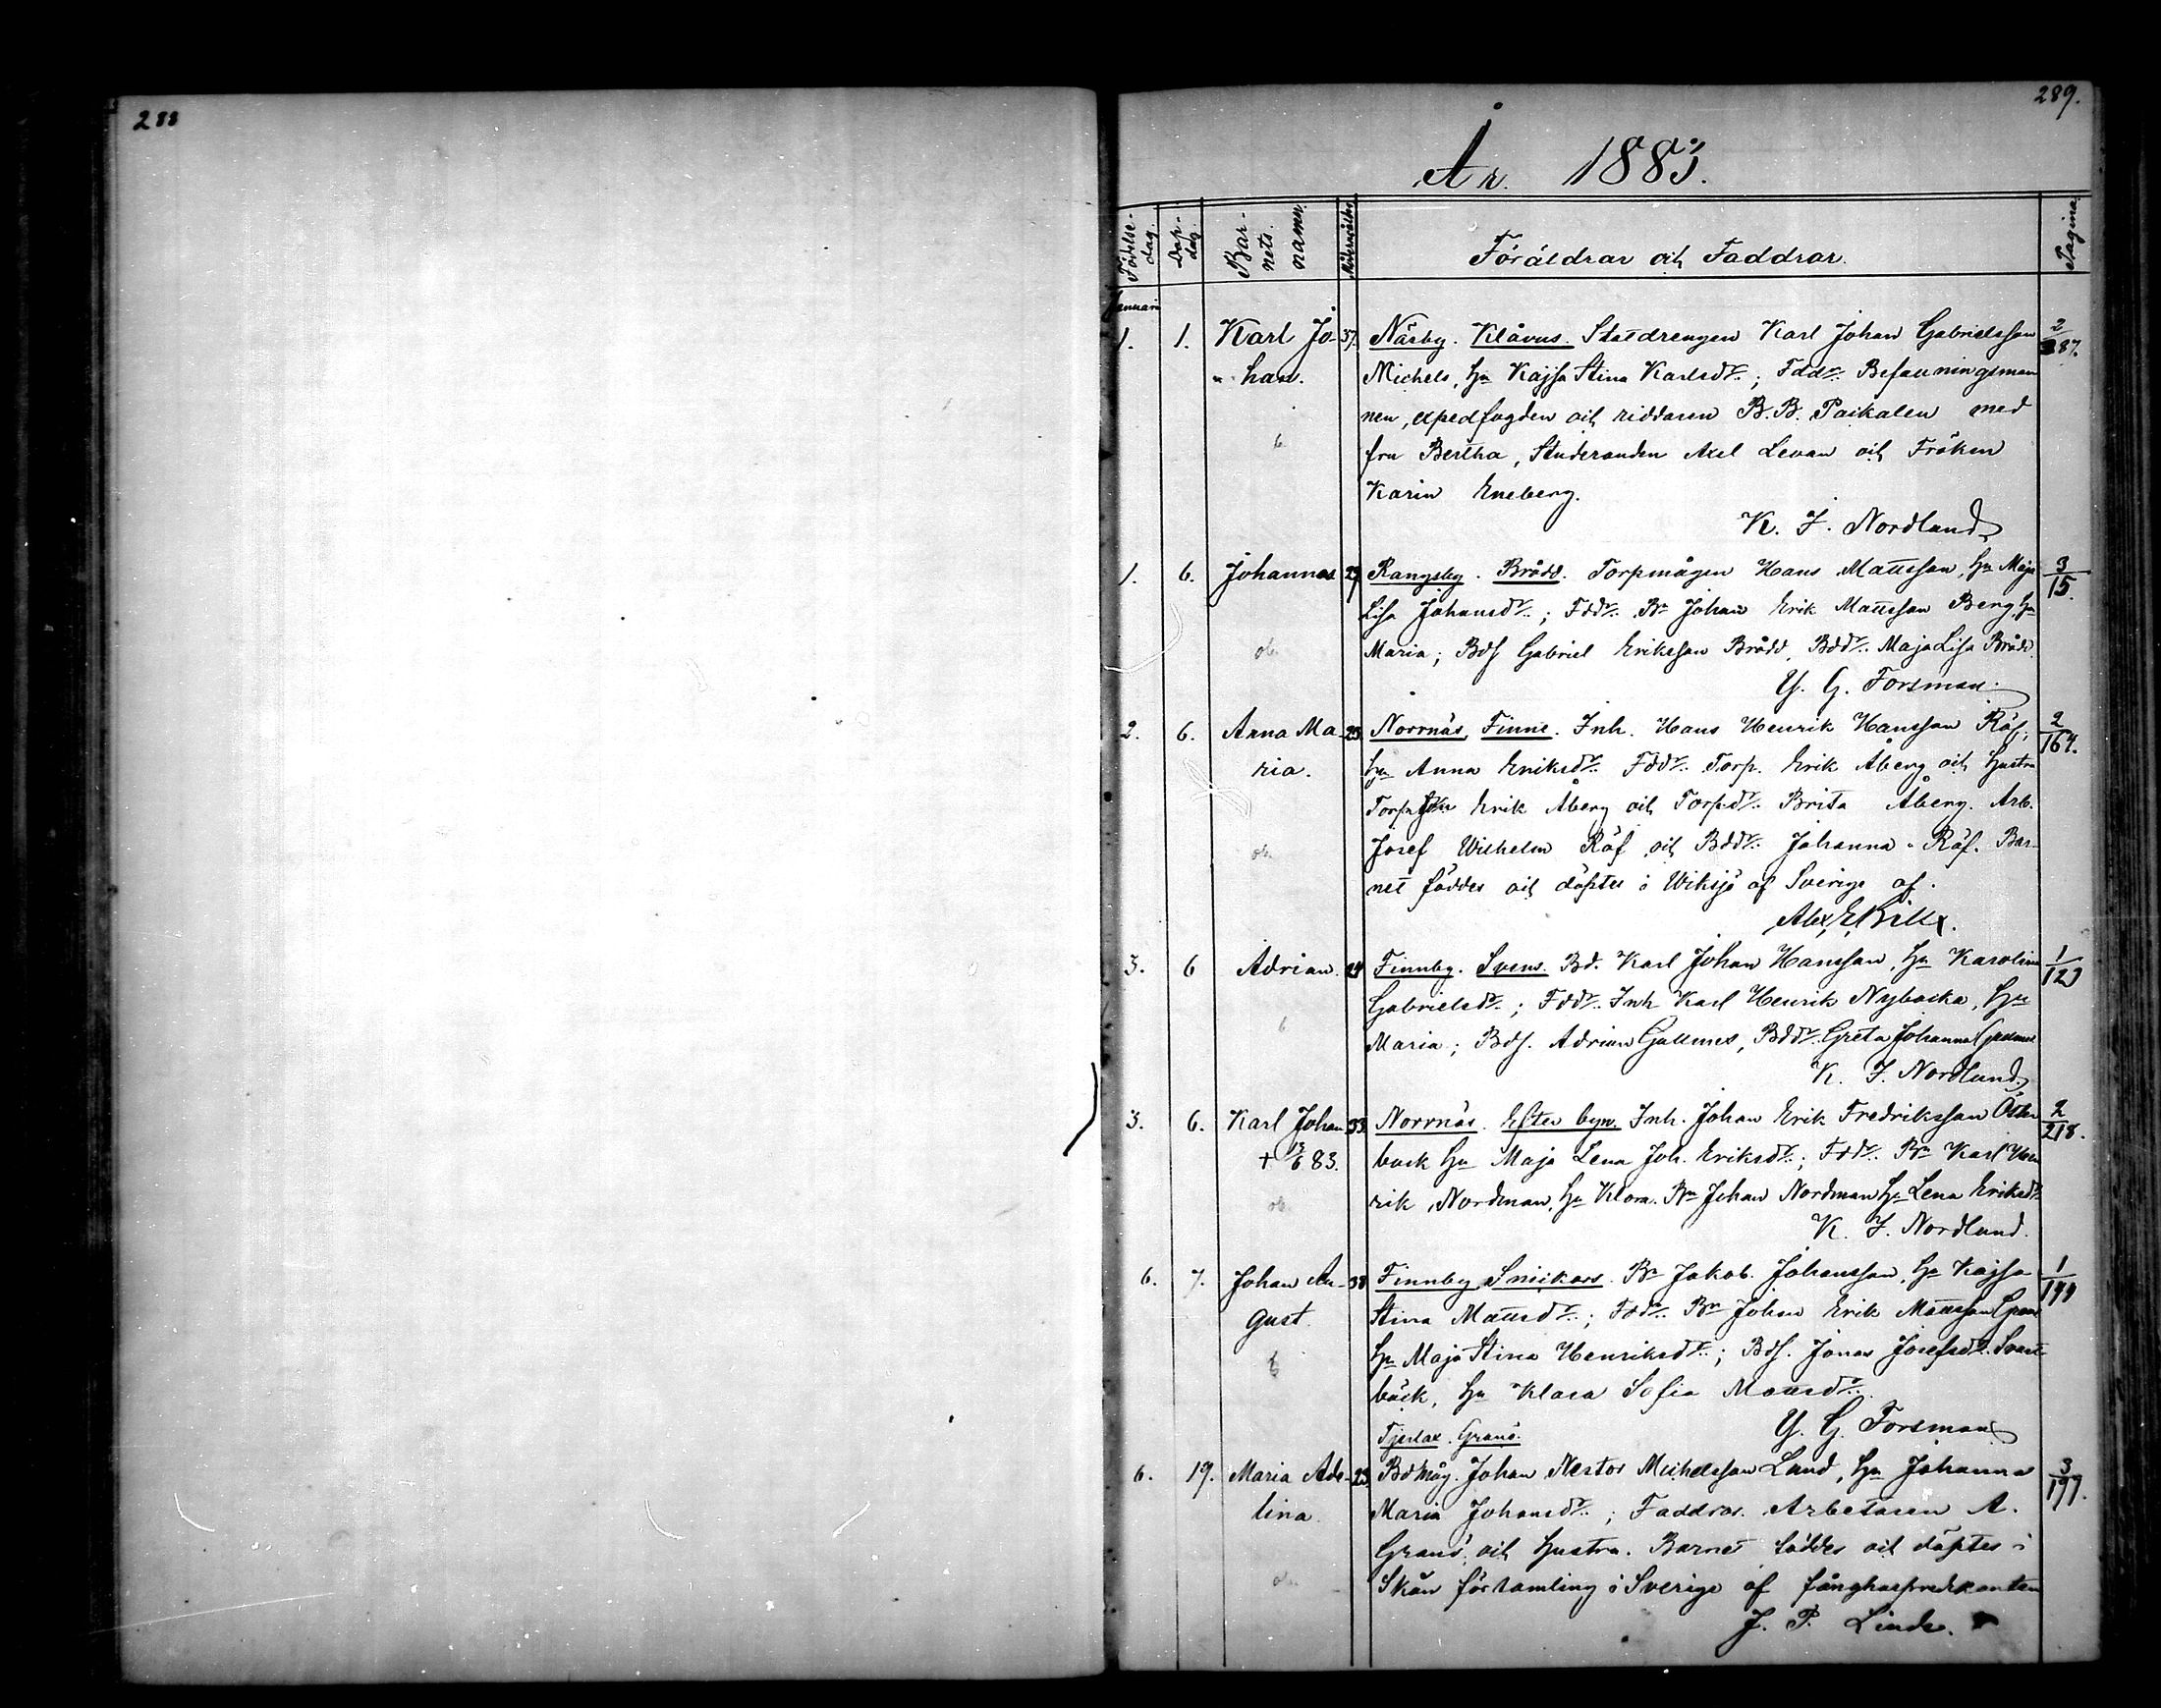 288
289.
År 1883.
Födelse-dag. Dop-dag. Bar-nets namn. Moderns ålder Föräldrar och Faddrar. Pagina.
Januari
1. 1. Karl Jo- 37. Närby. Klåvus. Staldrengen Karl Johan Gabrielsson 2/287.
han. Michels, Hu Kajsa Stina Karlsdr.; Fddr. Befallningsman
nen, och riddaren B. B. Paikalen med
fru Bertha, Studeranden Axel Levan och Fröken
Karin Eneberg.
K. J. Nordlund
1. 6. Johannes 29 Rangsby. Brådd. Torpmågen Hans Mattsson, Hu Maja 3/15.
Lisa Johansdr.; Fddr. Bn Johan Erik Mattsson Berg, Hu
Maria; Bds Gabriel Eriksson Brådd, Bddr. Maja Lisa Brådd.
Y. G. Forsman.
2. 6. Anna Ma- 25 Norrnäs, Finne. Inh. Hans Henrik Hansson Räf, 2/164.
ria. Hu Anna Eriksdr. Fddr. Torp. Erik Åberg och Hustru
Torp. Erik Åberg och Torpdr. Brita Åberg. Arb.
Josef Wilhelm Räf och Bddr. Johanna Räf. Bar-
net föddes och döptes i Wiksjö af Sverige af.
Alex,
3. 6 Adrian. 24 Finnby. Svens. Bd. Karl Johan Hansson, Hu Karolina 1/123
Gabrielsdr.; Fddr. Inh Karl Henrik Nybacka, Hu
Maria; Bds. Adrian Gullmes, Bddr. Greta Johanna
K. J. Nordlund
3. 6. Karl Johan 33. Norrnäs. Efter byn. Inh. Johan Erik Fredriksson Öster 2/218.
+ 13/6 83. back Hu Maja Lena Joh. Eriksdr.; Fddr. Bn Karl Hen
rik Nordman, Hu Klara. Bn Johan Nordman Hu Lena Eriksdr.
K. J. Nordlund.
6. 7. Johan Au- 38 Finnby Snickars. Bn Jakob Johansson, Hu Kajsa 1/199
gust. Stina Mattsdr.; Fddr. Bn Johan Erik Mattsson
Hu Maja Stina Henriksdr.; Bds. Jonas Josefsdr. Svart-
bäck, Hu Klara Sofia Mattsdr.
Y. G. Forsman
Tjerlax. Granö.
6. 19. Maria Ade- 23 Bdmåg. Johan Nestor Michelsson Lund, Hu Johanna 3/197.
lina. Maria Johansdr.; Faddrar. Arbetaren A.
Granö och hustru. Barnet föddes och döptes i
Skön församling i Sverige af fånghuspredikanten
J. P. Linde.